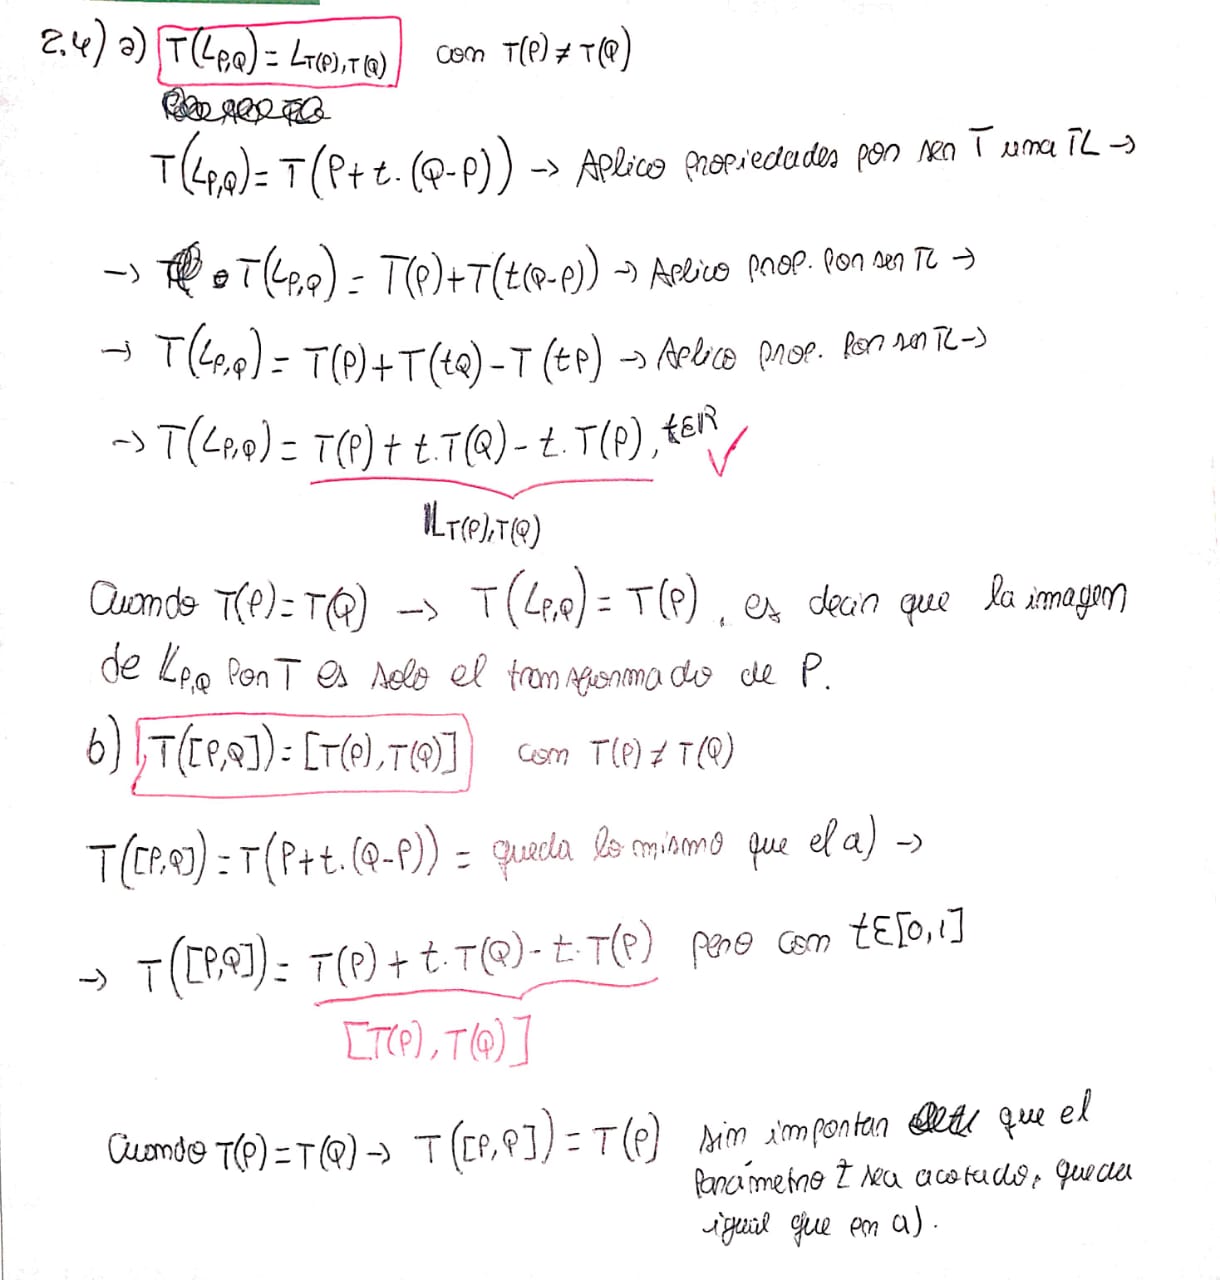 2.4) a) T(L_{P,Q}) = L_{T(P),T(Q)} con T(P) ≠ T(Q)
T(L_{P,Q}) = T(P + t.(Q-P)) → Aplico propiedades por ser T una TL →
→ T(L_{P,Q}) = T(P) + T(t(Q-P)) → Aplico prop. por ser TL →
→ T(L_{P,Q}) = T(P) + T(tQ) - T(tP) → Aplico prop. por ser TL →
→ T(L_{P,Q}) = T(P) + t.T(Q) - t.T(P), t∈ℝ ✓
L_{T(P),T(Q)}
Cuando T(P) = T(Q) → T(L_{P,Q}) = T(P), es decir que la imagen
de L_{P,Q} por T es solo el transformado de P.
b) T([P,Q]) = [T(P),T(Q)] con T(P) ≠ T(Q)
T([P,Q]) = T(P + t.(Q-P)) = queda lo mismo que el a) →
→ T([P,Q]) = T(P) + t.T(Q) - t.T(P) pero con t∈[0,1]
[T(P),T(Q)]
Cuando T(P) = T(Q) → T([P,Q]) = T(P) sin importar que el
parámetro t sea acotado, queda
igual que en a).